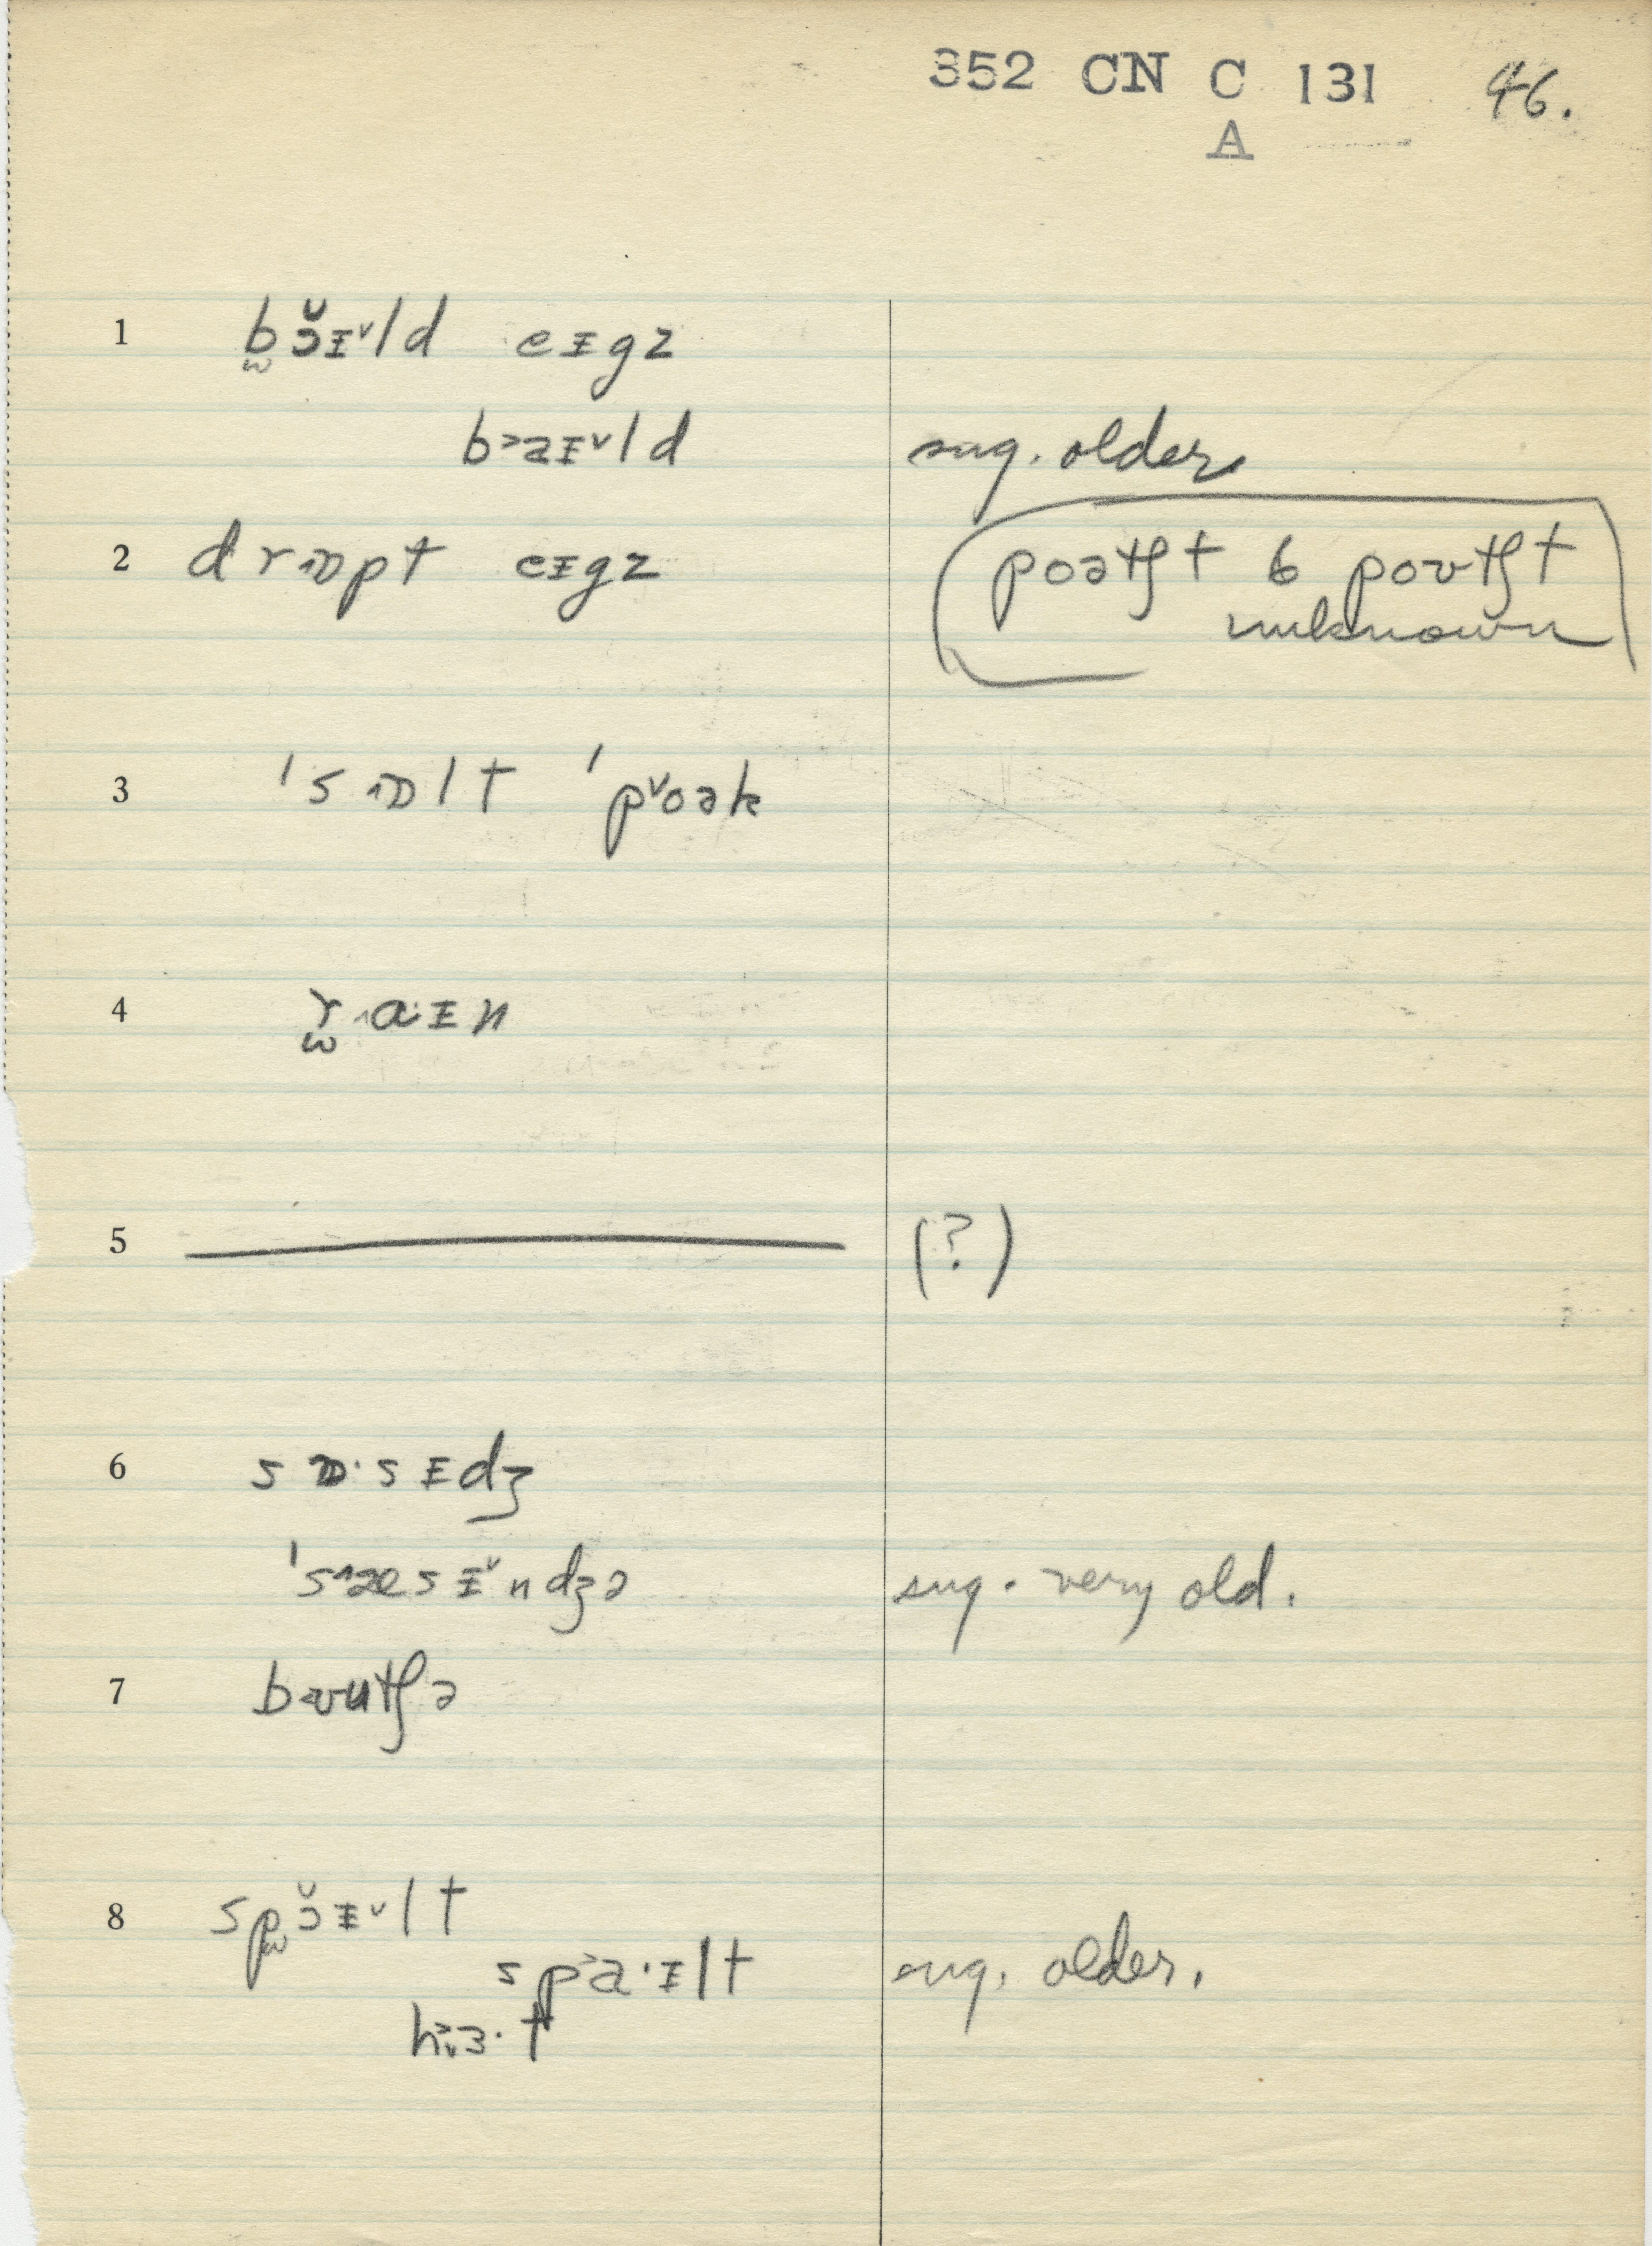 352 CN C 131 46.
A
1 b̫ɔ̆ɪ˅ld eɪgz
b˃aɪ˅ld sug. older
2 dr˄ɒpt eɪgz poətʃt & poʊtʃt
unknown
3 ˈs˄ɒlt ˈp˅oək
4 r̫˄a·ɪn
5 (?)
6 sɒ·sɪdʒ
ˈs˄æsɪ˅ndʒə sug. very old.
7 bʊutʃə
8 sp̫ɔ̆ɪ˅lt
sp˃a·ɪlt sug. older.